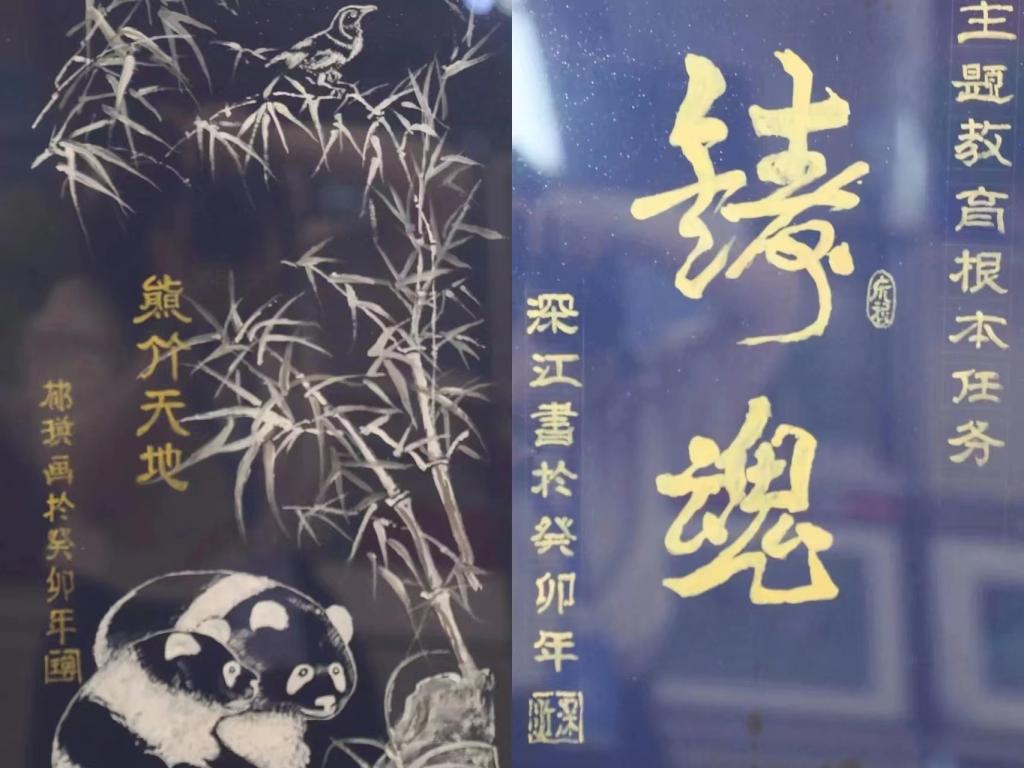 熊竹天地
琪画於癸卯年
主题教育根本任务
铸魂
深江書於癸卯年